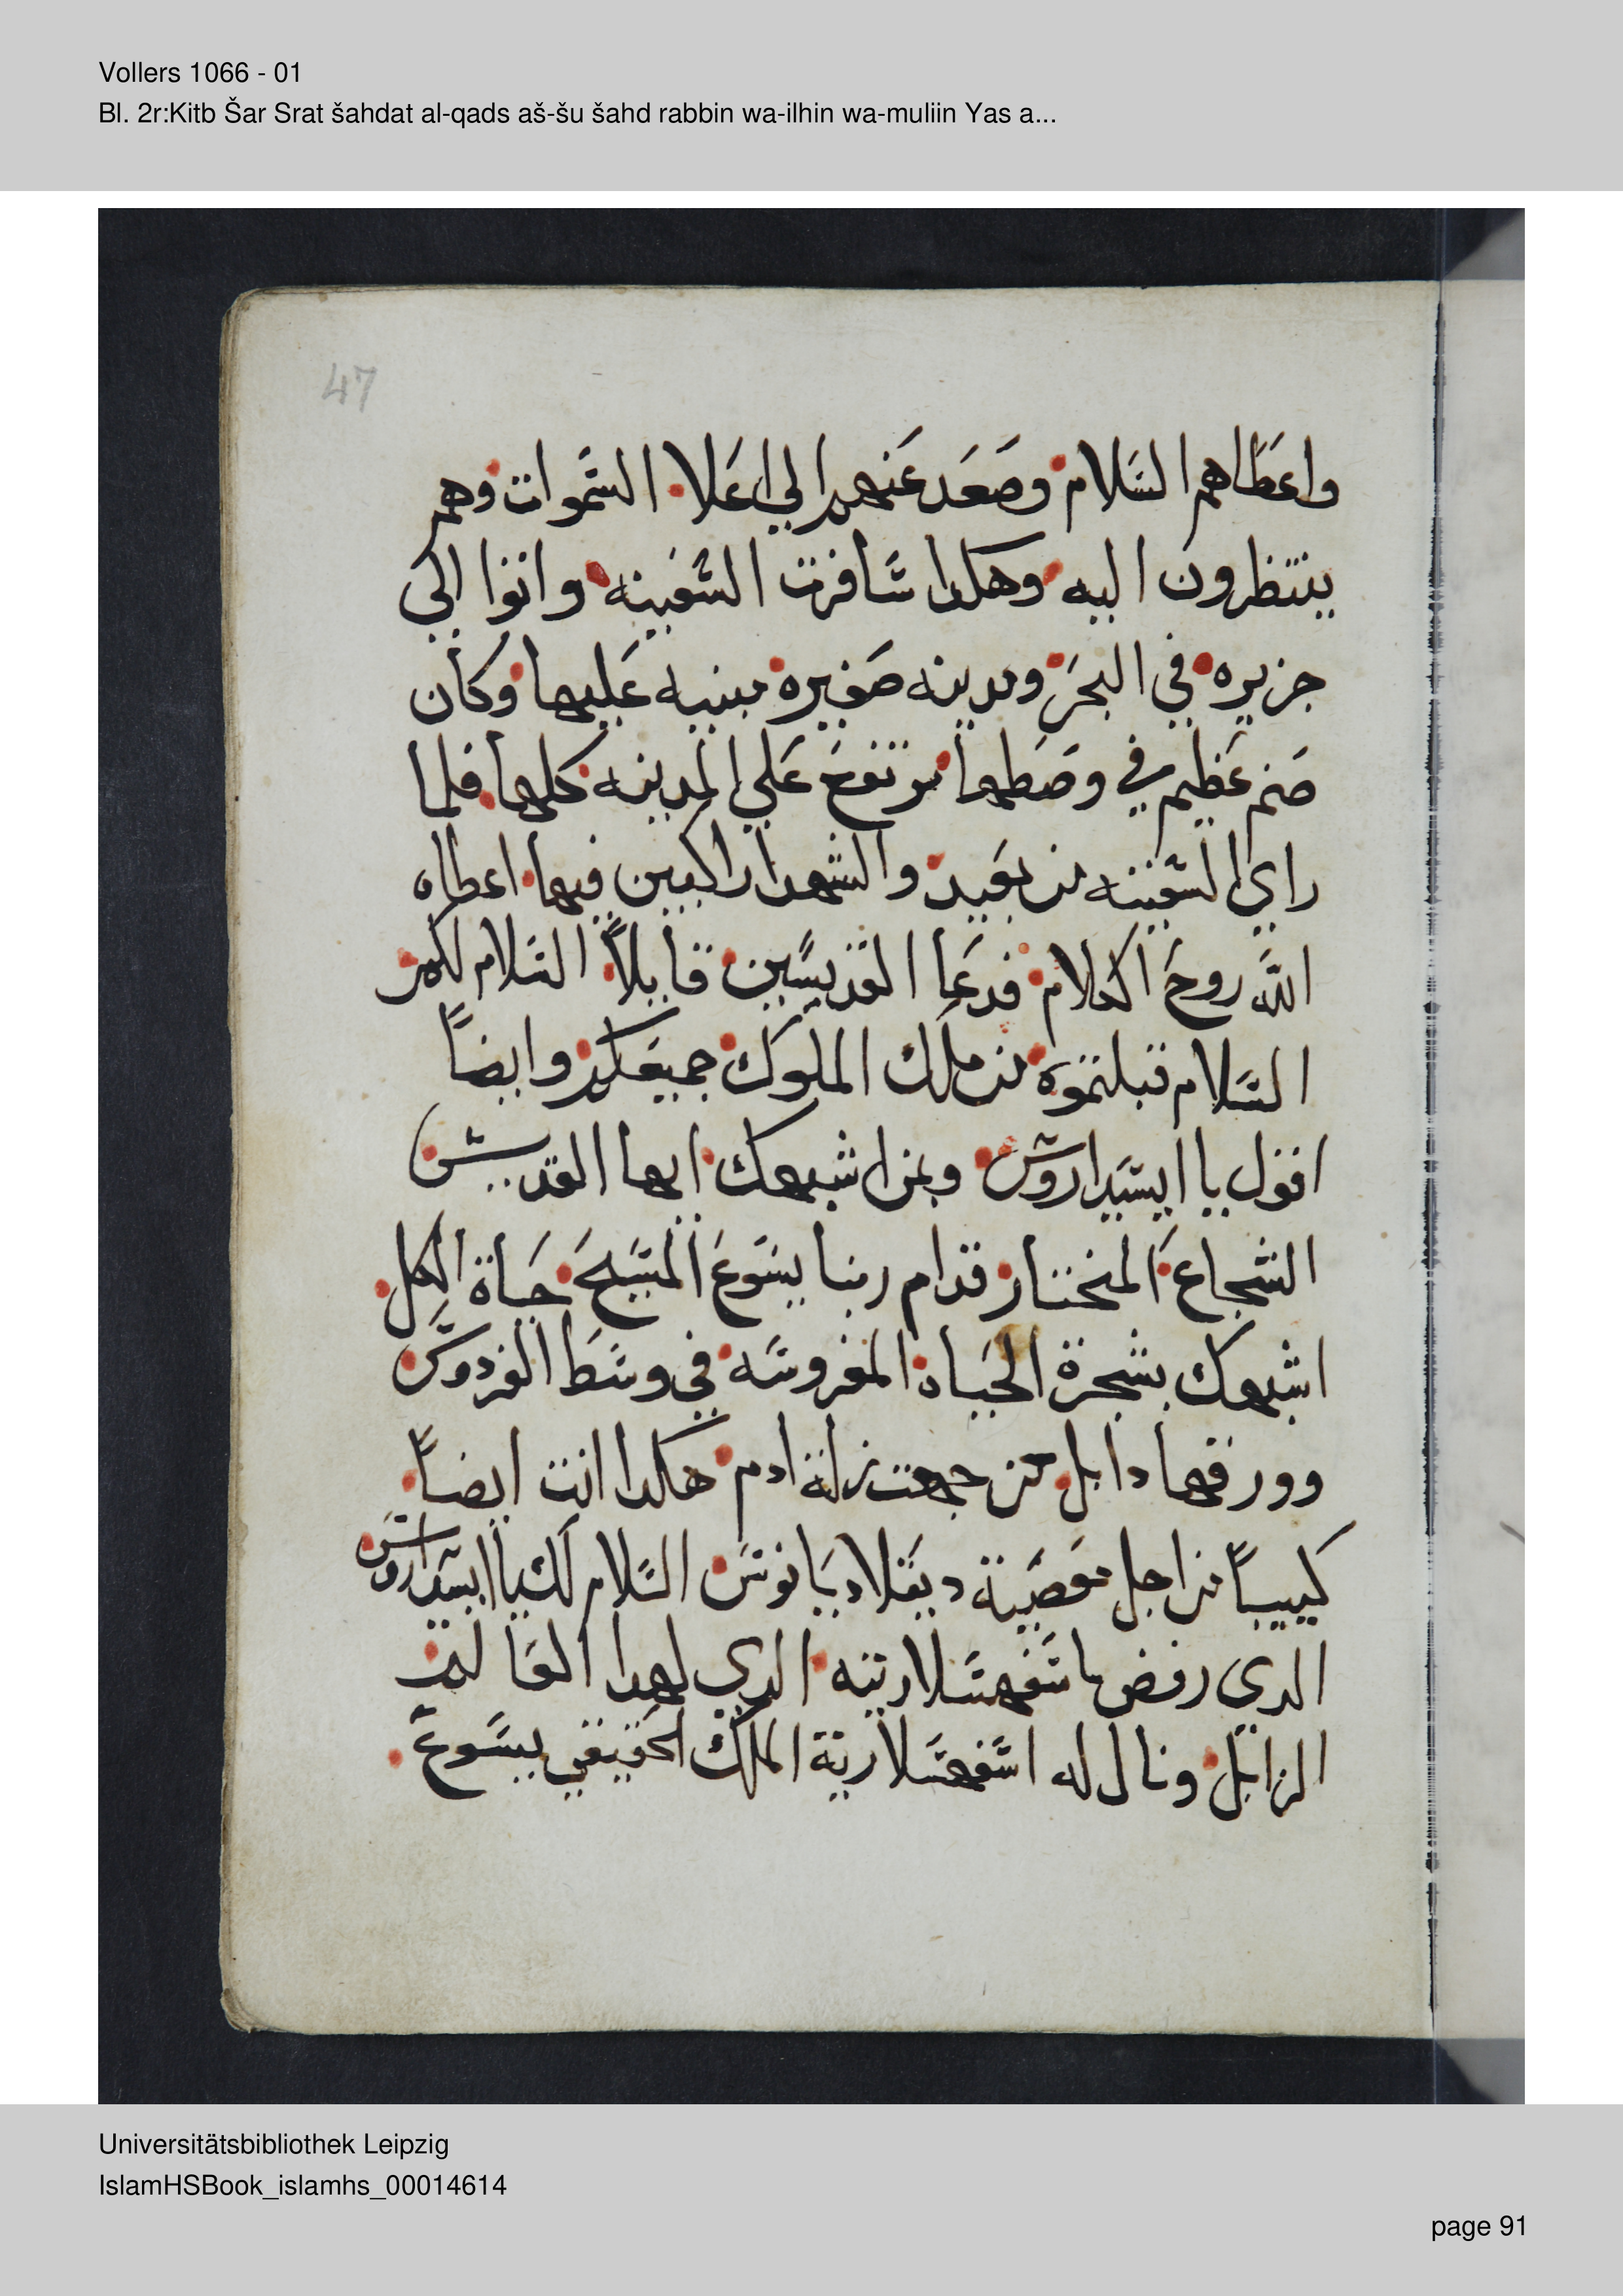 Vollers 1066 - 01
Bl. 2r:Kitb Šar Srat šahdat al-qads aš-šu šahd rabbin wa-ilhin wa-muliin Yas a...
47
واعطاهم السلام وصعد عنهم الي اعلا السموات وهم
ينتظرون اليه وهكدا سافرت السفينه واتوا الي
جزيره في البحر ومدينه صغيره مبنيه عليها وكان
صنم عظيم في وصطها مرتفع علي المدينه كلها فلما
راي السفينه من بعيد والشهدا راكبين فيها اعطاه
الله روح الكلام فدعا القديسين قايلاً السلام لكم
السلام قبلتموه من ملك الملوك جميعكم وايضاً
اقول يا ابسيداروس وبمن اشبهك ايها القديس
الشجاع المختار قدام ربنا يسوع المسيح حياة الكل
اشبهك بشجرة الحياه المغروسه في وسط الفردوس
وورقها دابل من جهت زلة ادم هكدا انت ايضاً
كييباً من اجل معصية ديقلاديانوس السلام لك يا ابسيداروس
الدي رفض اسفهسلاريته الدي لهدا العالم
الزايل ونال له اسفهسلارية الملك الحقيقي يسوع
Universitätsbibliothek Leipzig
IslamHSBook_islamhs_00014614
page 91